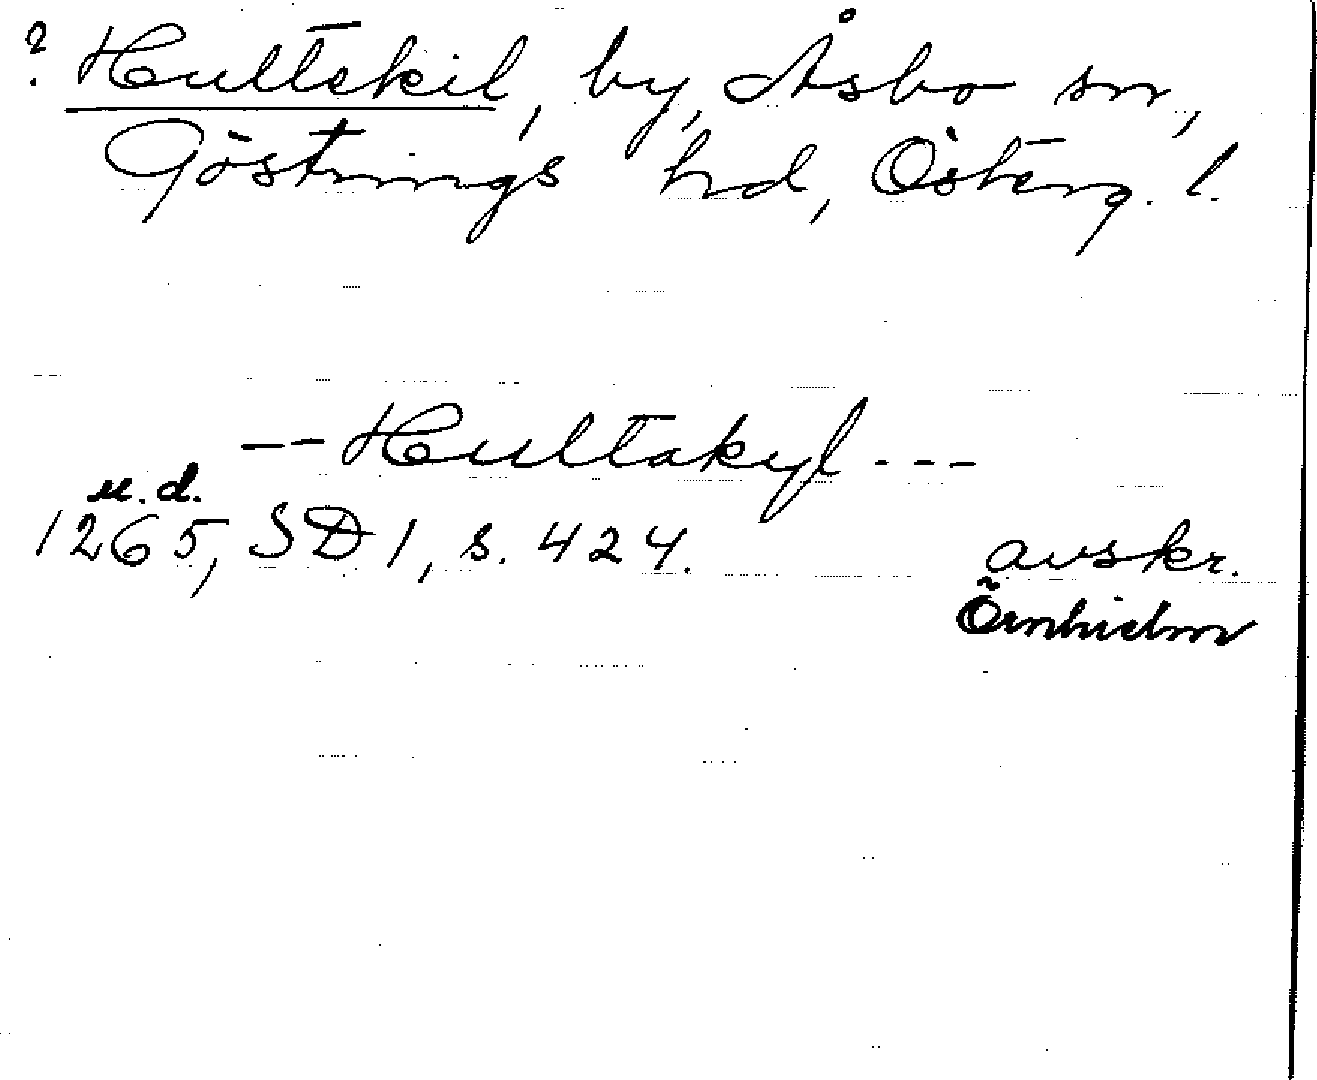 ? Hultekil, by, Åsbo sn,
Göstrings hd, Österg. l.
-- Hultakyl ---
u.d.
1265, SD 1, s. 424.
avskr.
Örnhielm